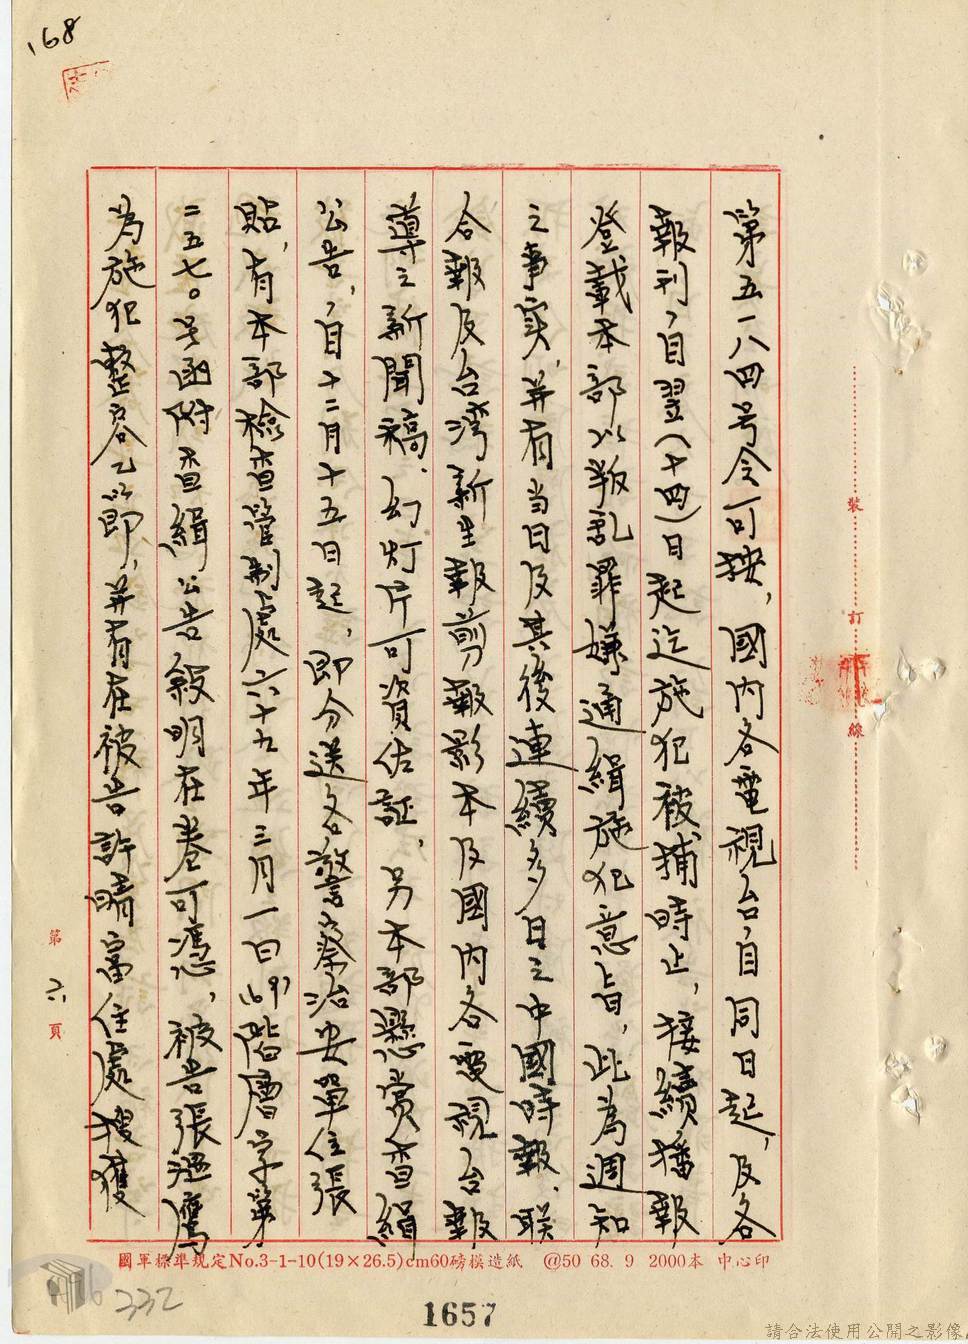 168
第五一八四号令可按，國内各電視台，自同日起，及各
報刊，自翌(十四)日起迄施犯被捕時止，接續播報
登載本部以叛乱罪嫌通緝施犯意旨，此為週知
之事实，并有当日及其後連續多日之中國時報、联
合報及台湾新生報剪報影本及國内各電視台報
導之新聞稿、幻灯片可資佐証，另本部懸賞查緝
公告，自十二月十五日起，即分送各警察治安單位張
貼，有本部檢查管制處六十九年三月一日(69)階層字第
二五七０号函附查緝公告敍明在卷可憑，被告張温鷹
為施犯整容乙節，并有在被告許晴富住處搜獲
裝
訂
線
第六頁
國軍標準規定No.3-1-10(19×26.5)cm60磅模造紙 @50 68. 9 2000本 中心印
332
1657
請合法使用公開之影像